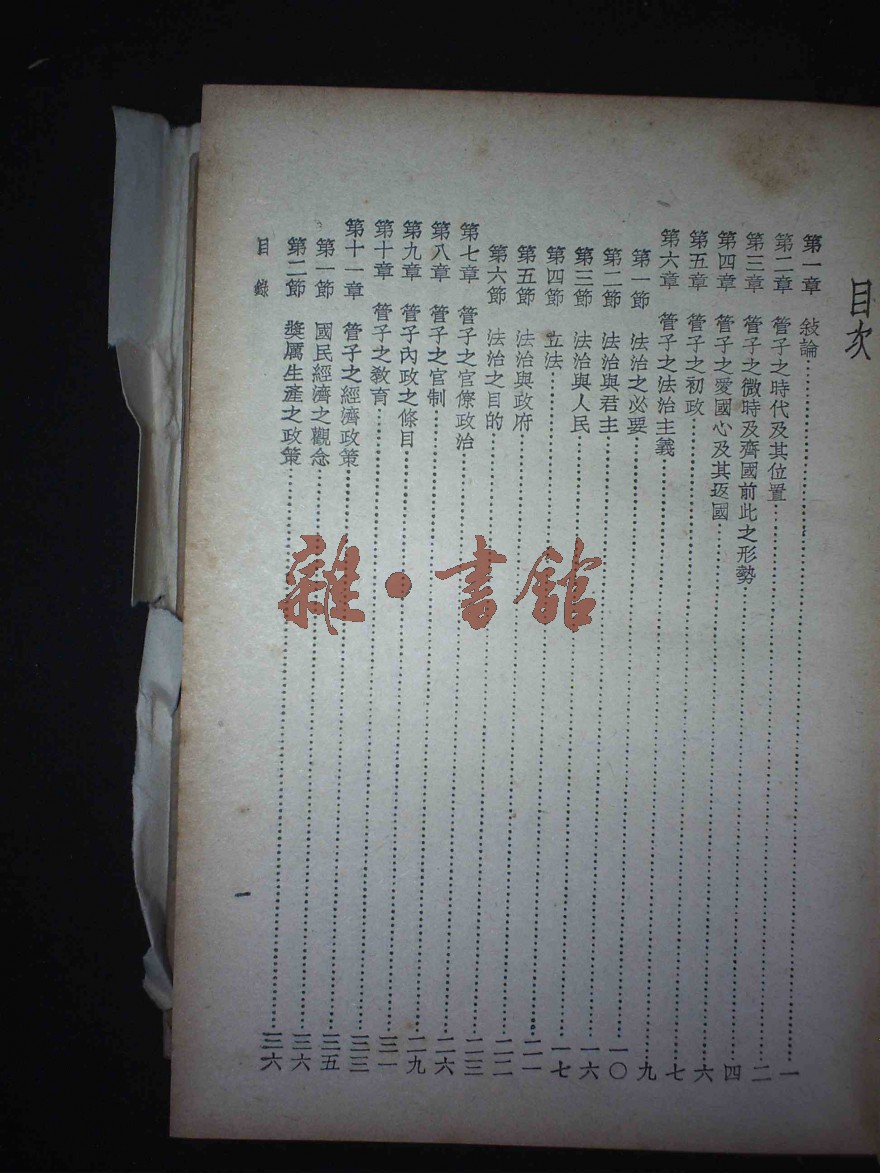 目次
第一章 敍論……一
第二章 管子之時代及其位置……二
第三章 管子之微時及齊國前此之形勢……四
第四章 管子之愛國心及其返國……六
第五章 管子之初政……七
第六章 管子之法治主義……九
第一節 法治之必要……一〇
第二節 法治與君主……一六
第三節 法治與人民……一七
第四節 立法……二一
第五節 法治與政府……二二
第六節 法治之目的……二三
第七章 管子之官僚政治……二六
第八章 管子之官制……二九
第九章 管子內政之條目……三一
第十章 管子之教育……三三
第十一章 管子之經濟政策……三五
第一節 國民經濟之觀念……三六
第二節 獎厲生產之政策……三六
目錄
一
雜·書館